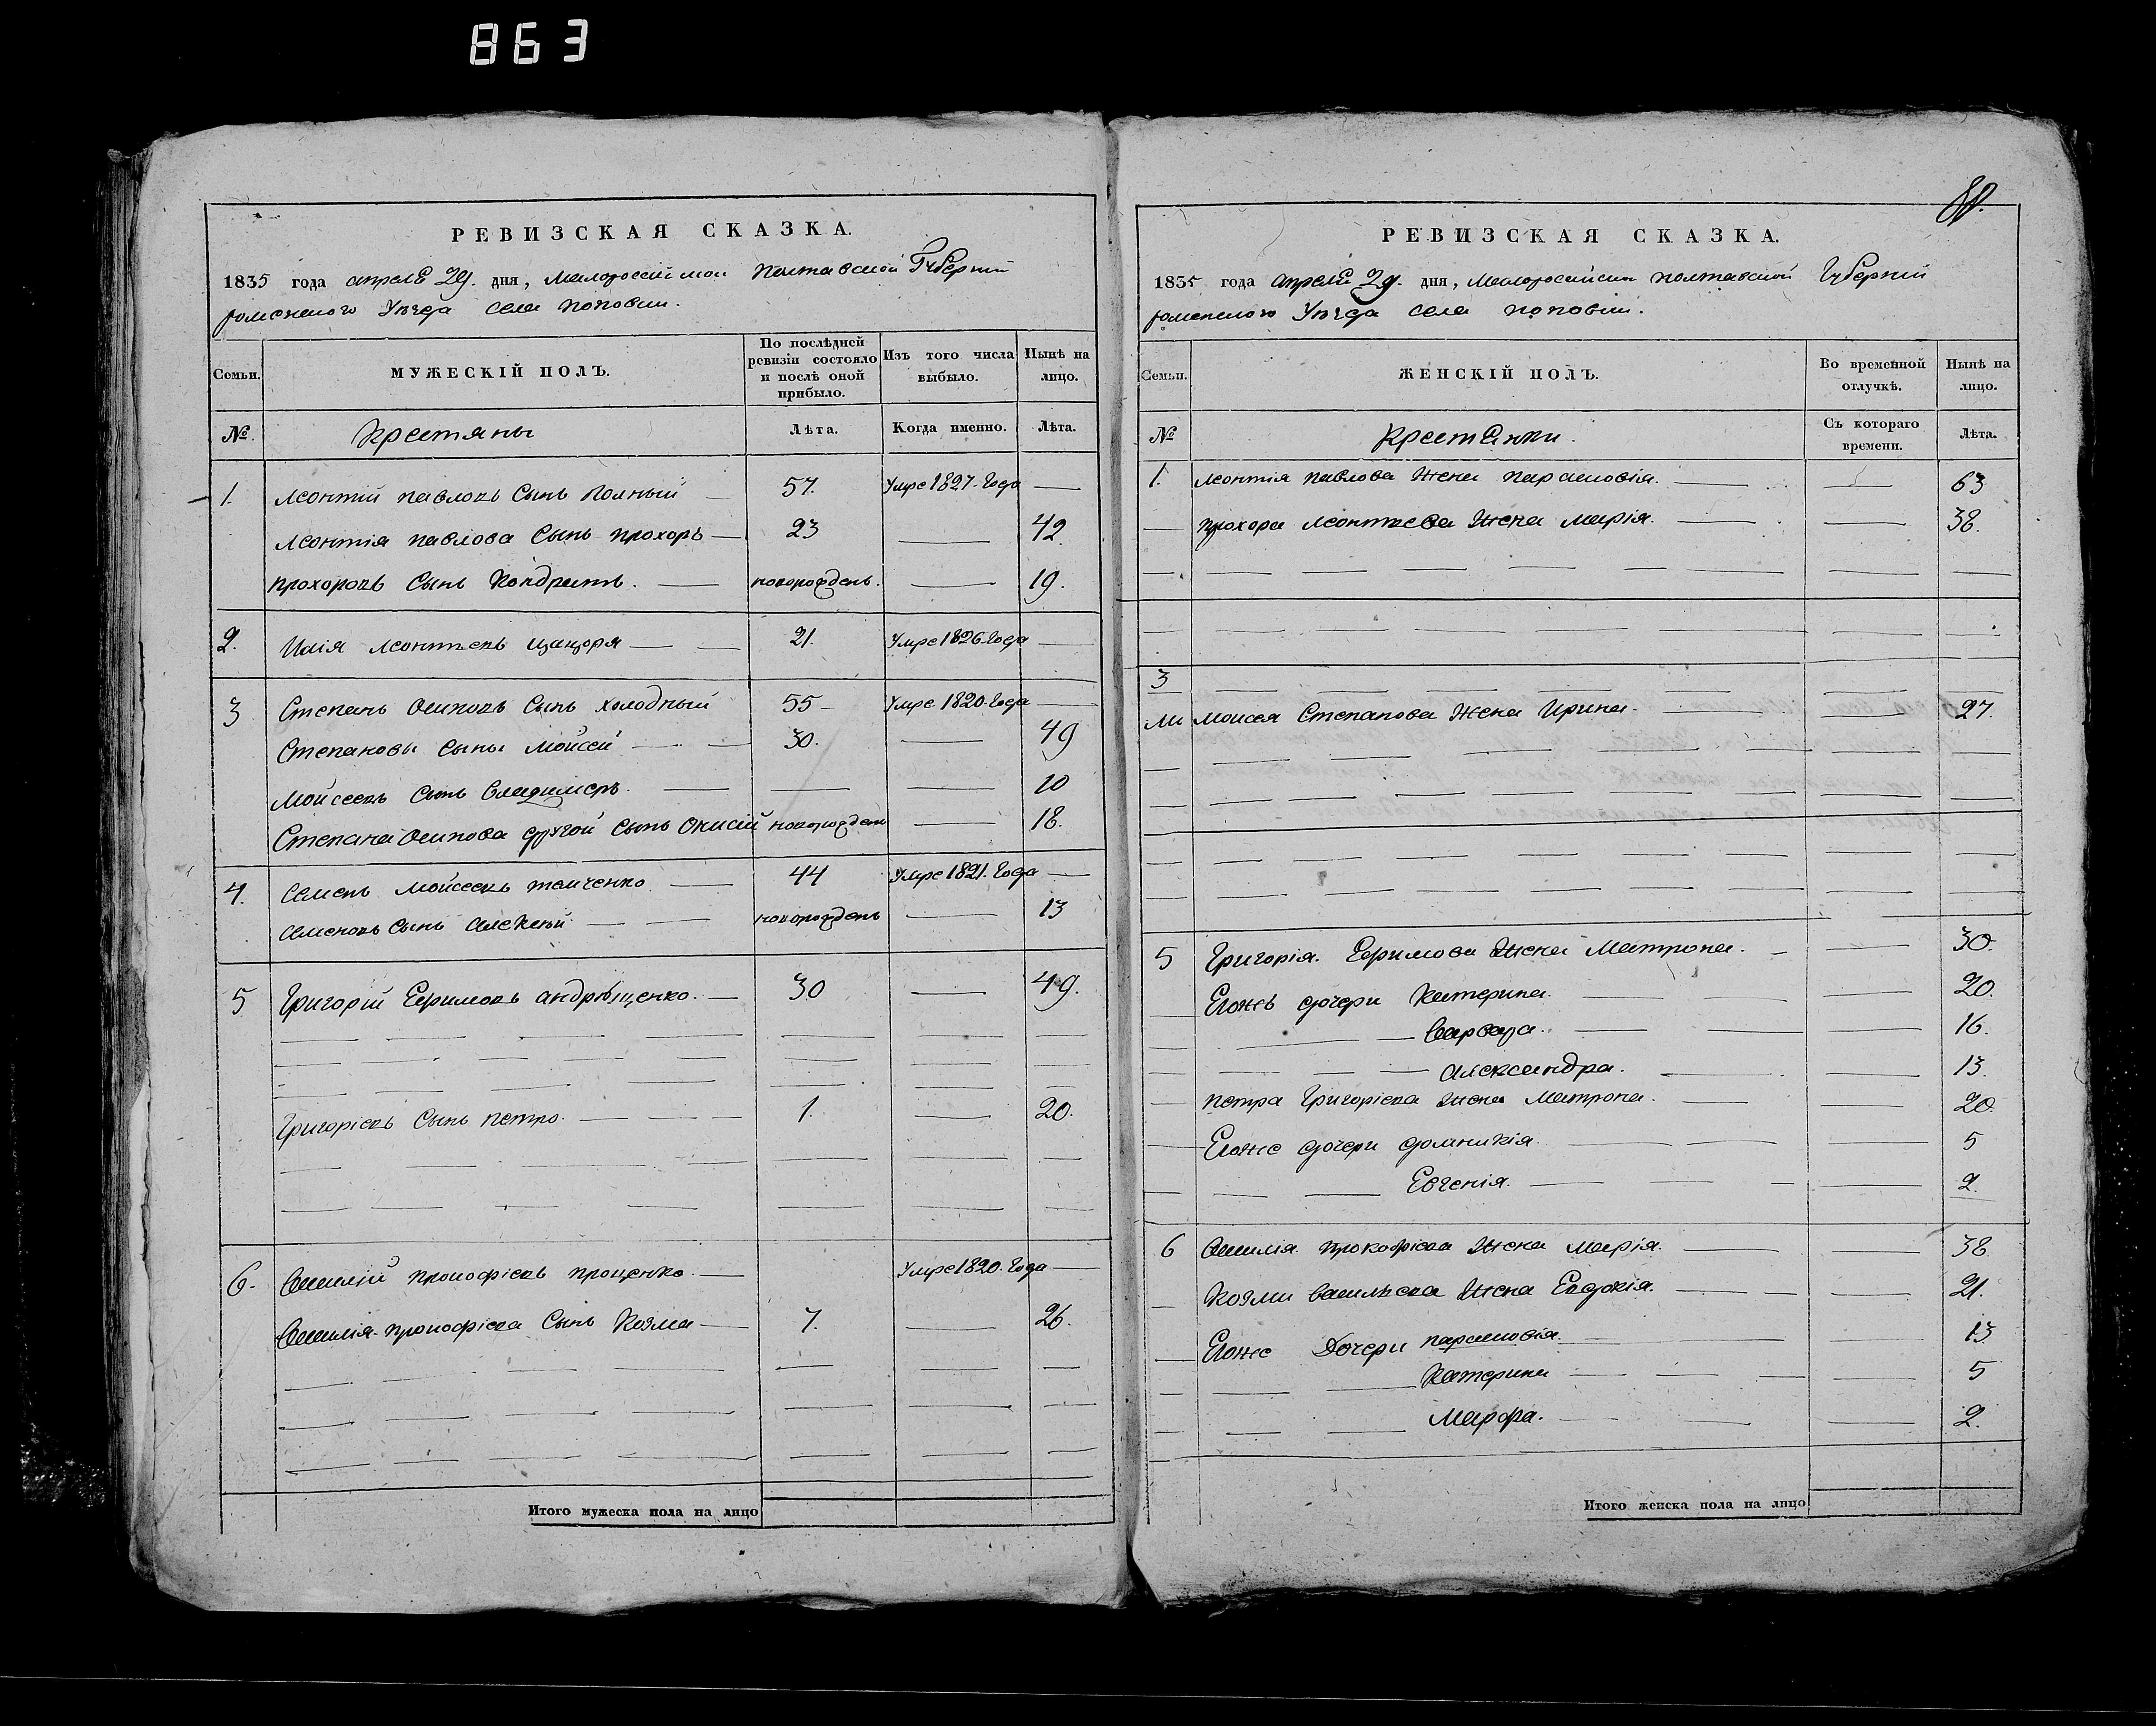 863
РЕВИЗСКАЯ СКАЗКА.
1835 года апреле 29. дня, Малоросеийской Полтавской Губерний
роменского Уѣзда села поповки.
Семьи.
МУЖЕСКІЙ ПОЛЪ.
По послѣдней ревизіи состояло и послѣ оной прибыло.
Изъ того числа выбыло.
Нынѣ на лицо.
№.
Крестяны
Лѣта.
Когда именно.
Лѣта.
1. Леонтій павловъ Сынъ 57. Умре 1827. Года
Леонтія павлова Сынъ прохоръ 23 42
прохоровъ Сынъ Кондратъ. новорожденъ. 19.
2. Илія леонтіевъ цацоря 21. Умре 1826 Года
3 Степанъ Осиповъ Сынъ холодный 55 Умре 1820. Года
Степановы Сыны Мойсей 30. 49
Мойсеевъ Сынъ Владимеръ. 10
Степана Осипова другой Сынъ Онисій новорожден 18.
4. Семенъ Мойсеевъ 44 Умре 1821. Года
Семеновъ Сынъ Алексѣй новорожденъ 13
5 Григорій Ефимовъ андрѣщенко. 30 49.
Григоріевъ Сынъ петро. 1. 20.
6. Василій прокофіевъ проценко. Умре 1820. Года
Василія прокофіева Сынъ Козма 7. 26.
Итого мужеска пола на лицо
РЕВИЗСКАЯ СКАЗКА.
1835 года апреле 29. дня, Малоросийской полтавской Губерній
роменского Уѣзда села поповки.
Семьи.
ЖЕНСКІЙ ПОЛЪ.
Во временной отлучкѣ.
Нынѣ на лицо.
№
Крестянки.
Съ котораго времени.
Лѣта.
1. леонтія павлова Жена парасковія. 63
прохора леонтиева Жена Марія. 38.
3
Моисея Степанова Жена Ирина. 27.
5 Григорія. Ефимова Жена Матрона. 30.
Егожъ дочери Катерина. 20.
Варвара. 16.
Александра. 13.
петра Григоріева Жена Матрона. 20.
Егоже дочери домникія. 5
Евгенія. 2.
6 Василія. прокофіева Жена Марія. 38.
Козми васильева Жена Евдокія. 21.
Егоже Дочери парасковія. 13
Катерина 5
Марфа. 2.
Итого женска пола на лицо